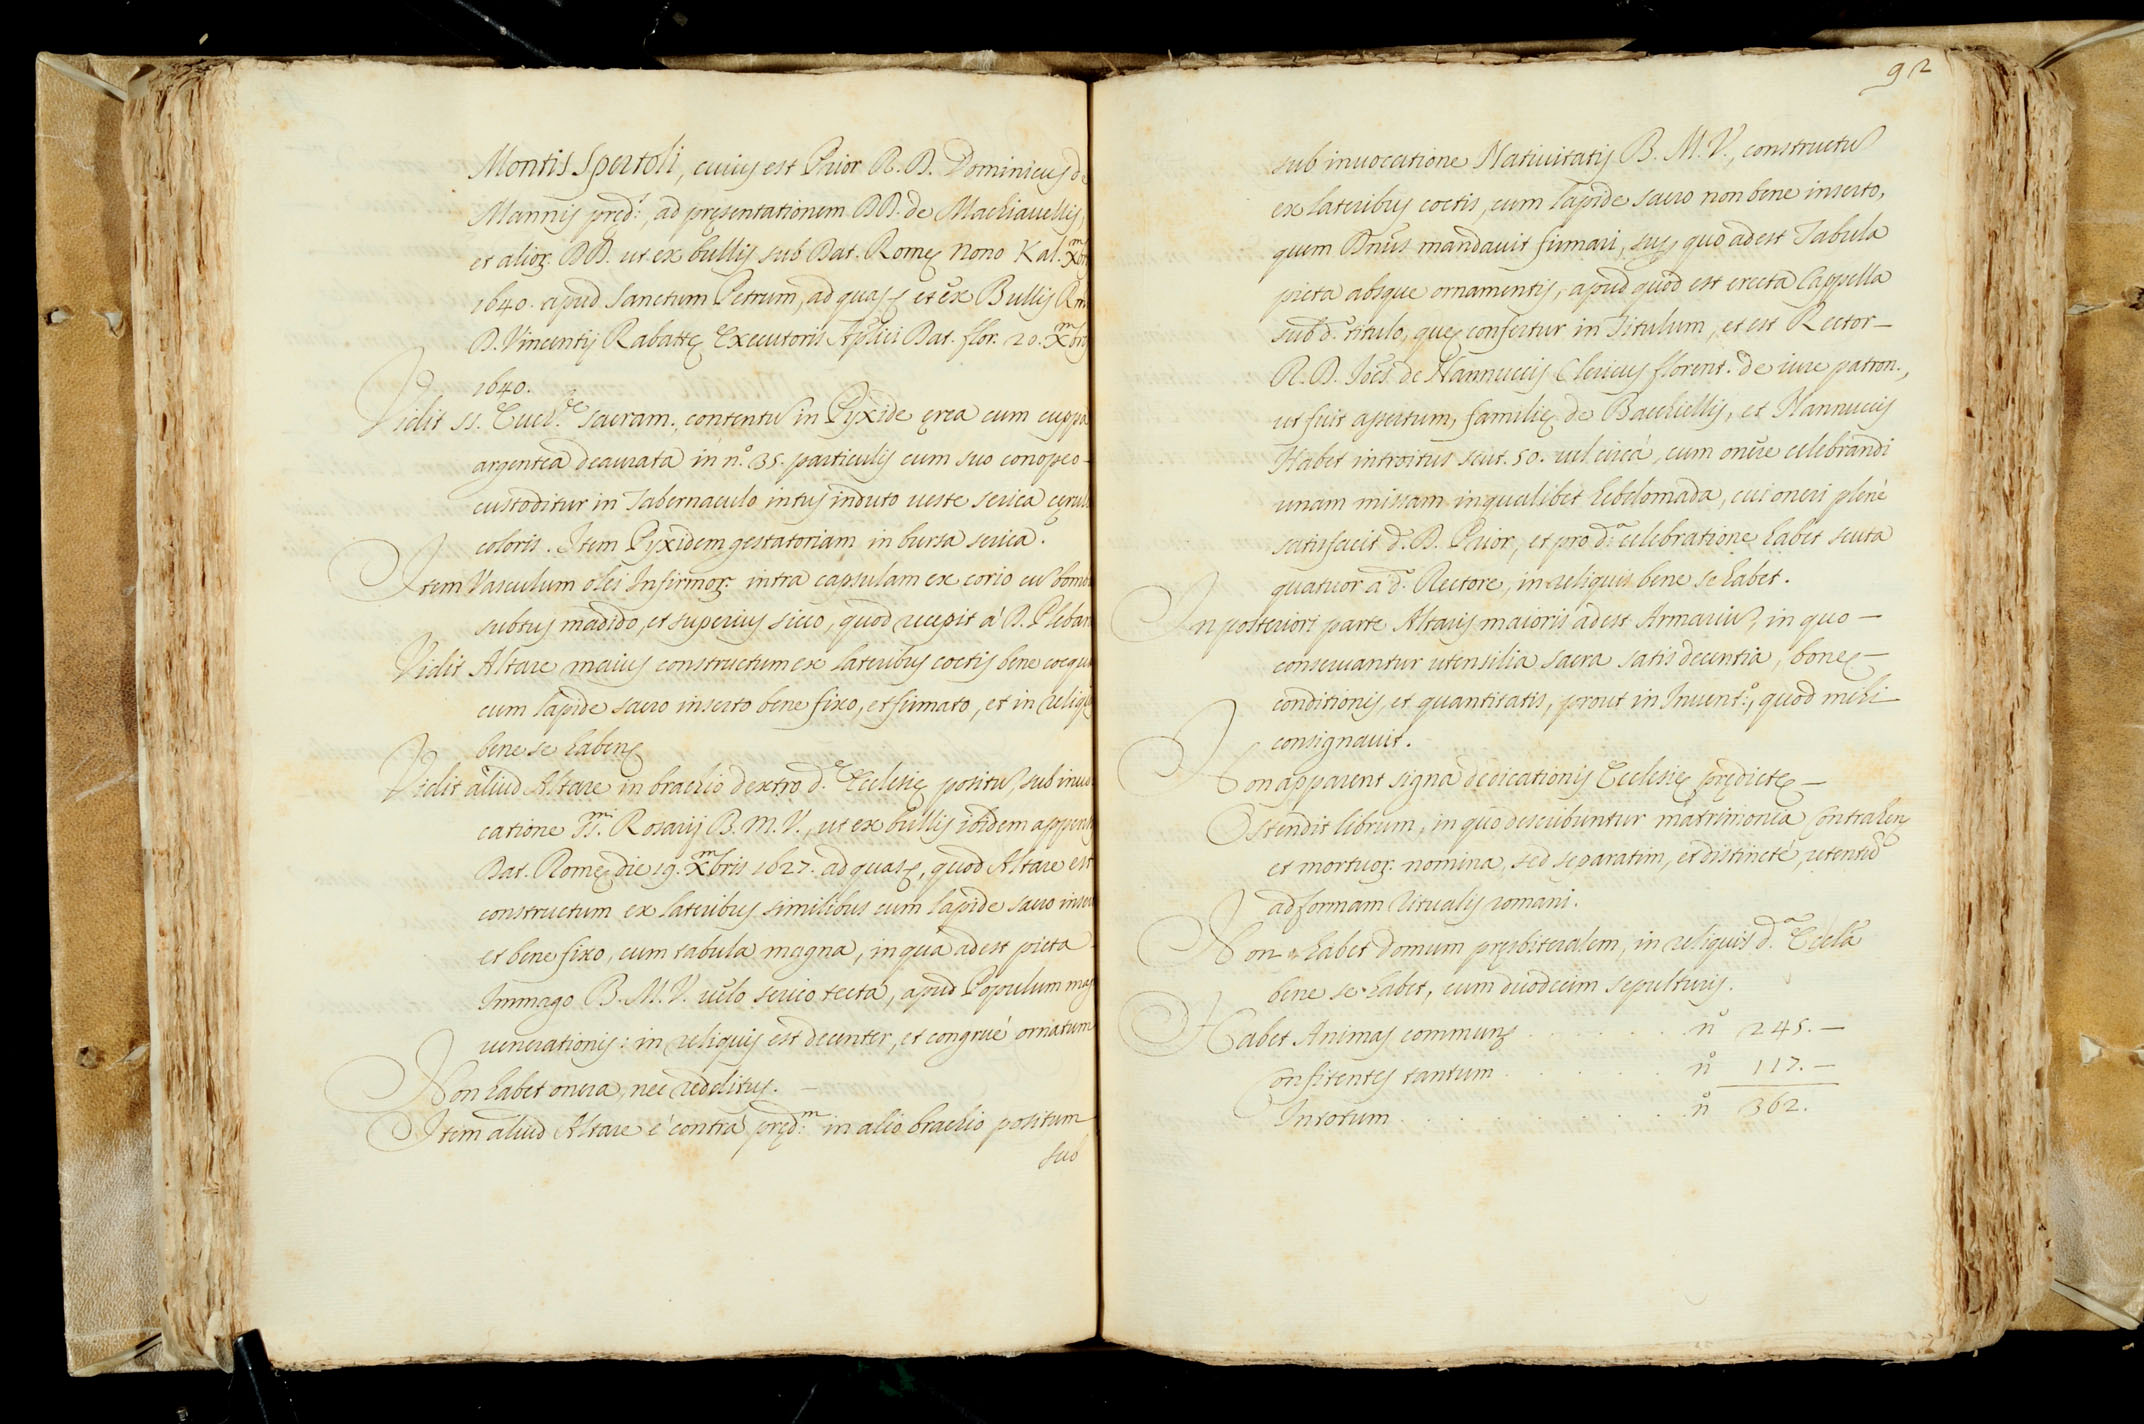 Montis Spertoli, cuius est Prior R. D. Dominicus de
Mannis pręd.ˢ, ad pręsentationem DD. de Machiauellis,
et alior. DD. ut ex bullis sub Dat. Romę Nono Kal. Xmbris
1640. apud Sanctum Petrum, ad quas et ex Bullis
D. Vincentij Rabattę Executoris Aplici Dat. flor. 20. Xmbris
1640.
Vidit SS. Euch.ᵉ Sacram., contentũ in Pyxide ęrea cum cuppa
argentea deaurata in n.º 35. particulis cum suo conopeo
custoditur in Tabernaculo intus induto ueste serica
coloris. Item Pyxidem gestatoriam in bursa serica.
Item Vasculum olei Infirmor. intra capsulam ex corio cũ
subtus madido, et superius sicco, quod recepit à D. Pleban
Vidit Altare maius constructum ex lateribus coctis bene
cum lapide sacro inserto bene fixo, et firmato, et in reliqu
bene se habens
Vidit aliud Altare in brachio dextro d.ę Ecclesię positũ, sub inuo
catione SS.mi Rosarij B. M. V., ut ex bullis ibidem
Dat. Romę die 19. Xmbris 1627. ad quas, quod Altare est
constructum ex lateribus similibus cum lapide sacro inser
et bene fixo, cum tabula magna, in qua adest picta
Immago B. M. V. uelo serico tecta, apud Populum mag
uenerationis: in reliquis est decenter, et congruè ornatum
Non habet onera, nec redditus.
Item aliud Altare è contra pręd.m in alio brachio positum
sub
92
sub inuocatione Natiuitatis B. M. V., constructũ
ex lateribus coctis, cum lapide sacro non bene inserto,
quem Dnũs mandauit firmari, sup. quo adest Tabula
picta absque ornamentis, apud quod est erecta Cappella
sub d.º titulo, quę confertur in Titulum, et est Rector
R. D. Joẽs de Nannuccis Clericus florent.s de iure patron.,
ut fuit assertum, familię de Bacchiellis, et Nannuccis
Habet introitus scut. 50. uel circà, cum onere celebrandi
unam missam in qualibet hebdomada, cui oneri plenè
satisfacit d. D. Prior, et pro d.ª celebratione habet scuta
quatuor a d.º Rectore, in reliquis bene se habet.
In posteriori parte Altaris maioris adest Armariũ, in quo
conseruantur utensilia sacra satis decentia, bonę
conditionis, et quantitatis, prout in Inuent.º, quod mihi
consignauit.
Non apparent signa dedicationis Ecclesię prędictę
Ostendit librum, in quo describuntur matrimonia Contrahen
et mortuor. nomina, sed separatim, et distinctè, retentũ
ad formam Ritualis romani.
Non habet domum pręsbiteralem, in reliquis d.ª Eccla
bene se habet, cum duodecim sepulturis.
Habet Animas commun . . . . . . nº 245.
Confitentes tantum . . . . . . nº 117.
In totum . . . . . . nº 362.